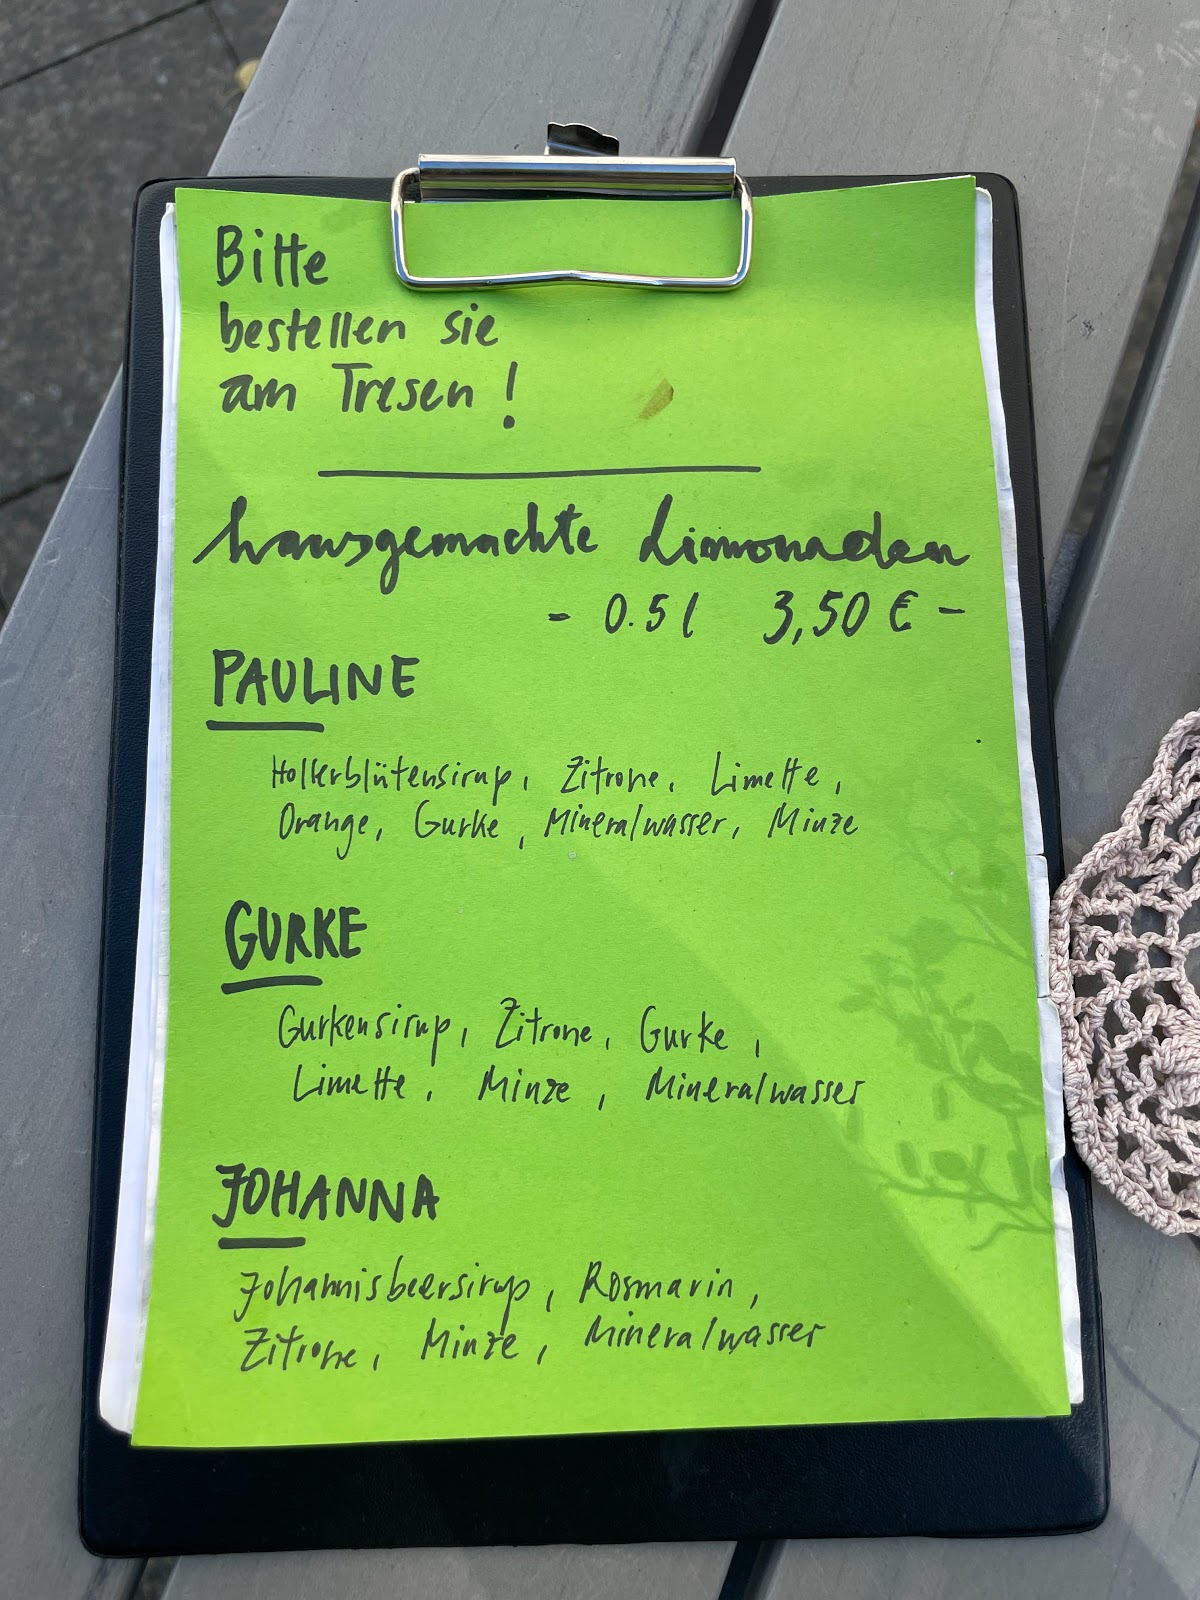 Bitte
bestellen sie
am Tresen!
hausgemachte Limonaden
- 0.5l 3,50 € -
PAULINE
Hollerblütensirup, Zitrone, Limette,
Orange, Gurke, Mineralwasser, Minze
GURKE
Gurkensirup, Zitrone, Gurke,
Limette, Minze, Mineralwasser
JOHANNA
Johannisbeersirup, Rosmarin,
Zitrone, Minze, Mineralwasser